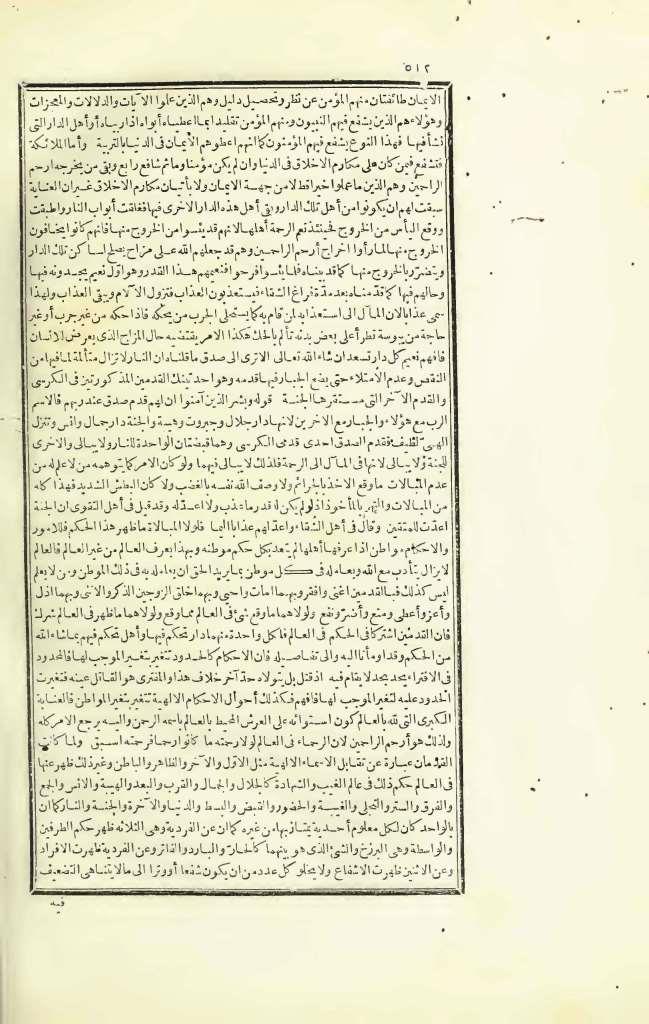 ٥١٢
الايمان طائفتان منهم المؤمن عن نظر وتحصيل دليل وهم الذين علموا الآيات والدلالات والمعجزات
وهؤلاء هم الذين يشفع فيهم النبيون ومنهم المؤمن تقليدا بما أعطياه أبواه اذ ربياه أو أهل الدار التى
نشأ فيها فهذا النوع يشفع فيهم المؤمنون كما انهم اعطوهم الايمان فى الدنيا بالتربية وأما الملائكة
فتشفع فيمن كان على مكارم الاخلاق فى الدنيا وان لم يكن مؤمنا وما ثم شافع رابع وبقى من يخرجه ارحم
الراحمين وهم الذين ما عملوا خيرا قط لا من جهة الايمان ولا باتيان مكارم الاخلاق غير ان العناية
سبقت لهم ان يكونوا من أهل تلك الدار وبقى أهل هذه الدار الاخرى فيها فغلقت أبواب النار واطبقت
ووقع اليأس من الخروج فحينئذ تعم الرحمة أهلها لانهم قد يئسوا من الخروج منها فانهم كانوا يخافون
الخروج منها لما رأوا اخراج أرحم الراحمين وهم قد جعلهم الله على مزاج يصلح لساكن تلك الدار
ويتضرر بالخروج منها كما قد بيناه فلما يئسوا فرحوا فنعيمهم هذا القدر وهو أول نعيم يجدونه فيها
وحالهم فيها كما قدمناه بعد مدة فراغ الشقاء فيستعذبون العذاب فتزول الآلام ويبقى العذاب ولهذا
سمى عذابا لان المآل الى استعذابه لمن قام به كما يستحلى الجرب من يحكه فاذا حكه من غير جرب أو غير
حاجة من يبوسة تطرأ على بعض بدنه تألم بالحك هكذا الامر يقتضيه حال المزاج الذى يعرض للانسان
فافهم نعيم كل دار تسعد ان شاء الله تعالى الا ترى الى صدق ما قلناه ان النار لا تزال متألمة لما فيها من
النقص وعدم الامتلاء حتى يضع الجبار فيها قدمه وهو احد تينك القدمين المذكورتين فى الكرسى
والقدم الآخر التى مستقرها الجنة قوله وبشر الذين آمنوا ان لهم قدم صدق عند ربهم فالاسم
الرب مع هؤلاء والجبار مع الاخرين لانها دار جلال وجبروت وهيبة والجنة دار جمال وانس وتنزل
الهى لطيف فقدم الصدق احدى قدمى الكرسى وهما قبضتان الواحدة للنار ولا يبالى والاخرى
للجنة ولا يبالى لانها فى المآل الى الرحمة فلذلك لا يبالى فيهما ولو كان الامر كما يتوهمه من لا علم له من
عدم المبالات ما وقع الاخذ بالجرائم ولا وصف الله نفسه بالغضب ولا كان البطش الشديد فهذا كله
من المبالات والتهم بالمأخوذ اذ لو لم يكن له قدر ما عذب ولا اعتد له وقد قيل فى أهل التقوى ان الجنة
اعدت للمتقين وقال فى أهل الشقاء واعد لهم عذابا أليما فلولا المبالاة ما ظهر هذا الحكم فللامور
والاحكام مواطن اذا عرفها أهلها لم يتعد بكل حكم موطنه وبهذا يعرف العالم من غير العالم فالعالم
لا يزال يتأدب مع الله ويعامله فى كل موطن بما يريد الحق ان يعامل به فى ذلك الموطن ومن لا يعلم
ليس كذلك فبالقدمين اغنى وافقر وبهما امات واحيى وبهما خلق الزوجين الذكر والانثى وبهما اذل
وأعز وأعطى ومنع وأضر ونفع ولولاهما ما وقع شئ فى العالم مما وقع ولولاهما ما ظهر فى العالم شرك
فان القدمين اشتركا فى الحكم فى العالم فلكل واحدة منهما دار تحكم فيها وأهل تحكم فيهم بما شاء الله
من الحكم وقد اومأنا اليه والى تفاصيله فان الاحكام كالحدود تتغير بتغير الموجب لها فالمحدود
فى الافتراء يحد بحد لا يقام فيه اذ قتل بل تتولاه حد آخر خلاف هذا والمفترى هو القاتل عينه فتغيرت
الحدود عليه لتغير الموجب لها فافهم فكذلك أحوال الاحكام الالهية تتغير بتغير المواطن فالعناية
الكبرى التى لله بالعالم كون استوائه على العرش المحيط بالعالم باسمه الرحمن واليه يرجع الامر كله
ولذلك هو أرحم الراحمين لان الرحماء فى العالم لولا رحمته ما كانوا رحما فرحمته اسبق ولما كانت
القدمان عبارة عن تقابل الاسماء الالهية مثل الاول والآخر والظاهر والباطن وغير ذلك ظهر عنها
فى العالم حكم ذلك فى عالم الغيب والشهادة كالجلال والجمال والقرب والبعد والهيبة والانس والجمع
والفرق والستر والتجلى والغيبة والحضور والقبض والبسط والدنيا والآخرة والجنة والنار كما ان
بالواحد كان لكل معلوم أحدية يمتاز بها من غيره كما ان عن الفردية وهى الثلاثه ظهر حكم الطرفين
والواسطة وهى البرزخ والشئ الذى هو بينهما كالحار والبارد والفاتر وعن الفردية ظهرت الافراد
وعن الاثنين ظهرت الاشفاع ولا يخلو كل عدد من ان يكون شفعا أو وترا الى ما لا يتناهى التضعيف
فيه